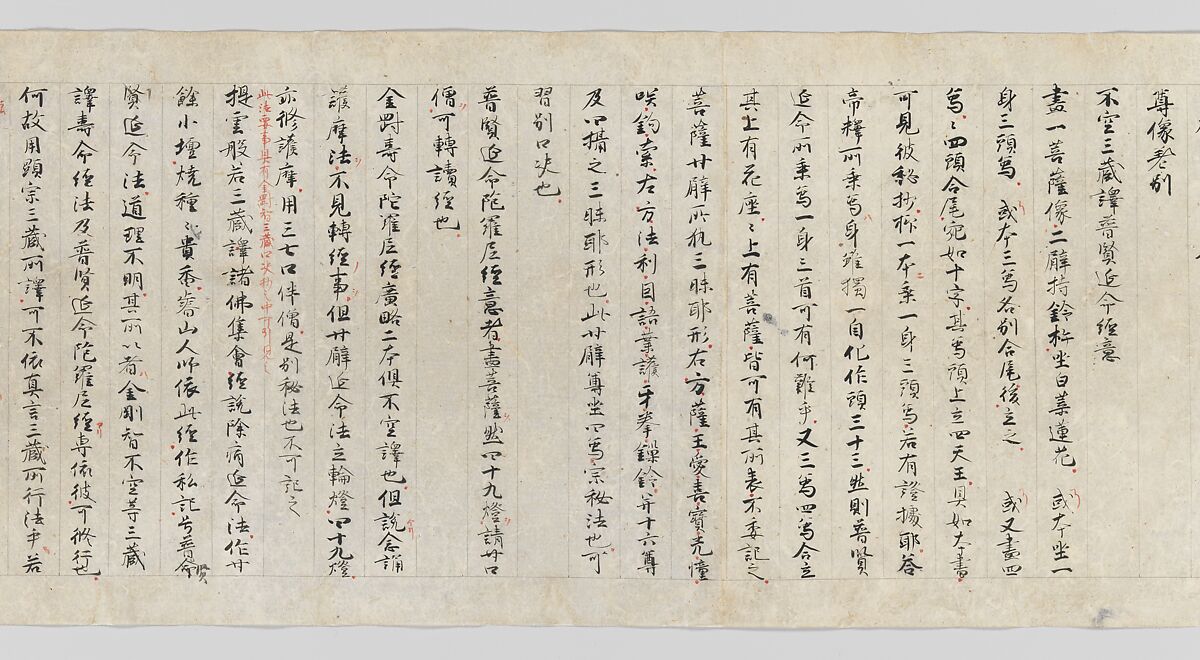 尊像卷別
不空三藏譯普賢延命經意
畫一菩薩像二臂持鈴杵坐白葉蓮花 或本坐一
身三頭鳥 或本三鳥各別合尾後立之 或又畫四
鳥〻四頭合尾宛如十字其鳥頭上立四天王具如本書
可見彼秘抄招一本乘一身三頭鳥若有證據耶答
帝釋所乘鳥身雖獨一自化作頭三十三然則普賢
延命所乘鳥一身三首可有何難乎又三鳥四鳥合立
其上有花座〻上有菩薩皆可有其所表不委記之
菩薩廿臂所執三昧耶形右方薩王愛喜寶光幢
咲鈎索左方法利因語業護牙拳鏁鈴并十六尊
及四攝之三昧耶形也此廿臂尊坐四鳥宗秘法也可
習別口决也
普賢延命陀羅尼經意者畫菩薩然四十九燈請廿口
僧可轉讀經也
金罸壽命陀羅尼經廣略二本俱不空譯也但說念誦
護摩法不見轉經事但廿臂延命法立輪燈四十九燈
亦修護摩用三七口伴僧是別秘法也不可記之
此法要事具有金剛智三藏口决抄之中可引見之
提雲般若三藏譯諸佛集會經說除病延命法作廿
餘小壇燒種〻貴香睿山人師依此經作私記号普賢命
賢延命法道理不明其所以者金剛智不空等三藏
譯壽命經法及普賢延命陀羅尼經專依彼可修行也
何故用顯宗三藏所譯可不依真言三藏所行法乎若